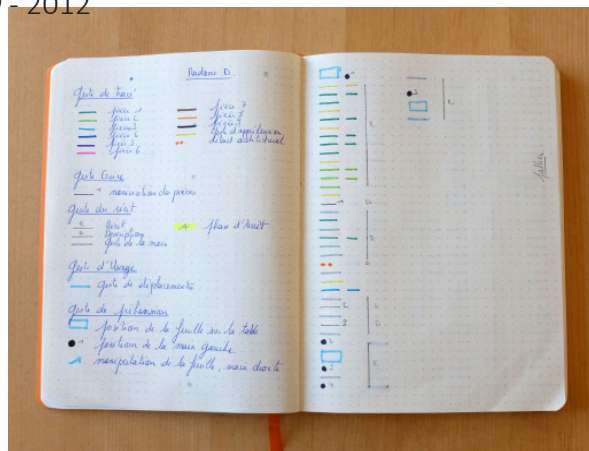 - 2012
Madame D.
Geste de tracé
pièce 1
pièce 2
pièce 3
pièce 4
pièce 5
pièce 6
pièce 7
pièce 8
pièce 9
Geste d'appréhension
détail architectural
nomination des pièces
Geste du récit
R Récit
D Description
Geste de la main
A phase d'Arrêt
Geste d'Usage
geste de déplacements
Geste de préhension
position de la feuille sur la table
position de la main gauche
manipulation de la feuille, main droite